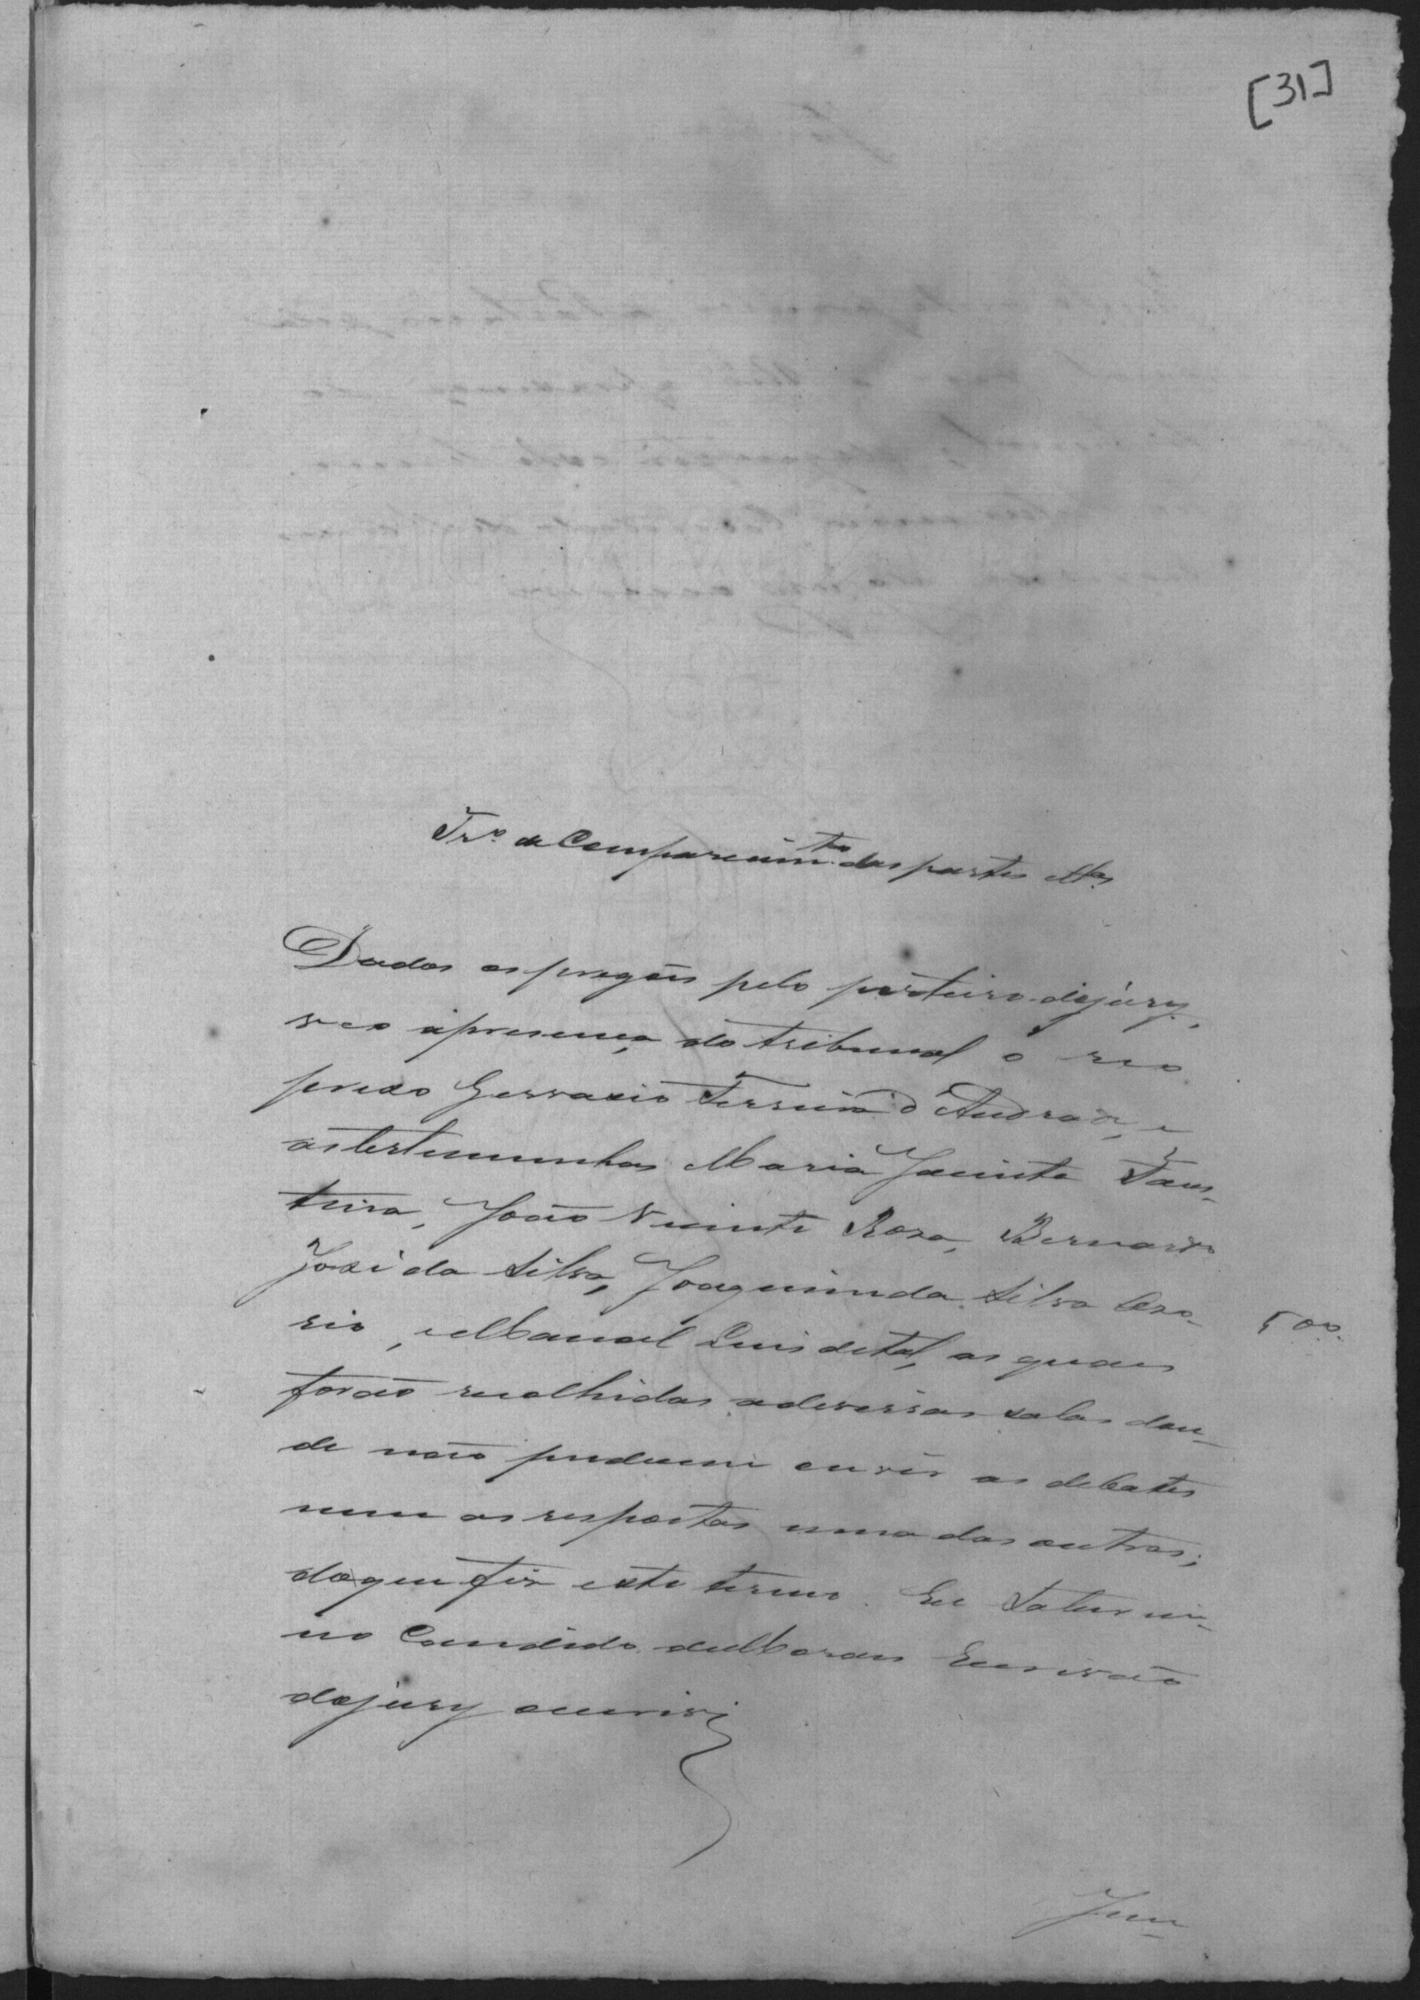 [31]
Tr.º de Comparecim.to das partes e t.as
Dados os pregões pelo porteiro do jury,
veo a presença do tribunal o reo
prezo Gervazio Ferreira d'Andrade, e
as testemunhas Maria Jacinta Faus-
tina, João Vicente Roza, Bernardo
José da Silva, Joaquim da Silva Ozo-
rio, e Manoel Luis de tal, as quaes
500.
forão recolhidas a diversas salas don-
de não podecem ouvir os debates
nem as respostas uma das outras;
do que fiz este termo. Eu Saturni-
no Candido de Moraes Escrivão
do jury escrivi